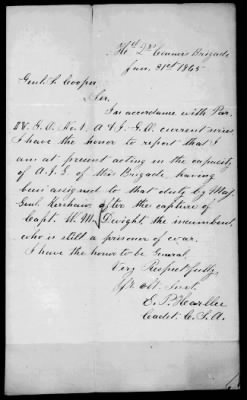 Hd Qrs Conner's Brigade
Jan. 31st 1865
Genl. S. Cooper
Sir,
In accordance with Par.
IV. G.O. No 1. A & I. G.O. current series
I have the honor to report that I
am at present acting in the capacity
of A.I.G of this Brigade having
been assigned to that duty by Maj.
Genl. Kershaw after the capture of
Capt. W. M. Dwight, the incumbent,
who is still a prisoner of war.
I have the honor to be General,
Very Respectfully
Yr Obt. Servt.
E. P. Harllee
Cadet C.S.A.